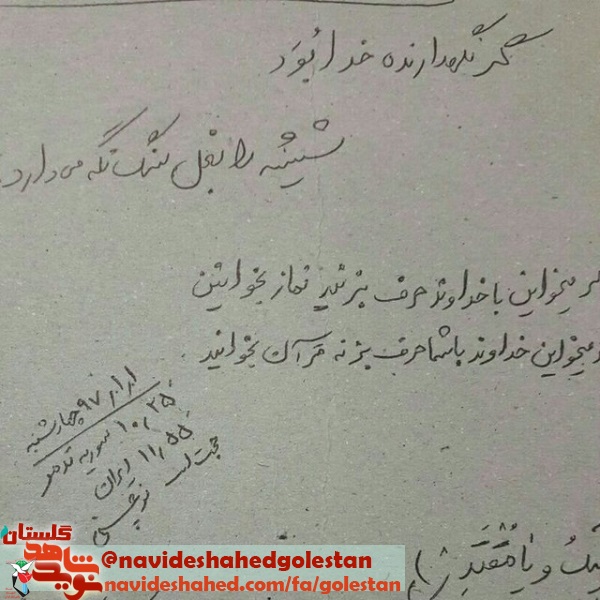 گر نگهدارنده خدا بُوَد
شیشه را بغل سنگ نگه می دارد
میخواین با خداوند حرف بزنید نماز بخوانین
میخواین خداوند با شما حرف بزنه قرآن بخوانید.
۹۷ چهارشنبه
۱۰،۲۵ سوریه تدمر
۱۱،۵۵ ایران
حجت اله
گلستان
نوید شاهد
@navideshahedgolestan
navideshahed.com/fa/golestan